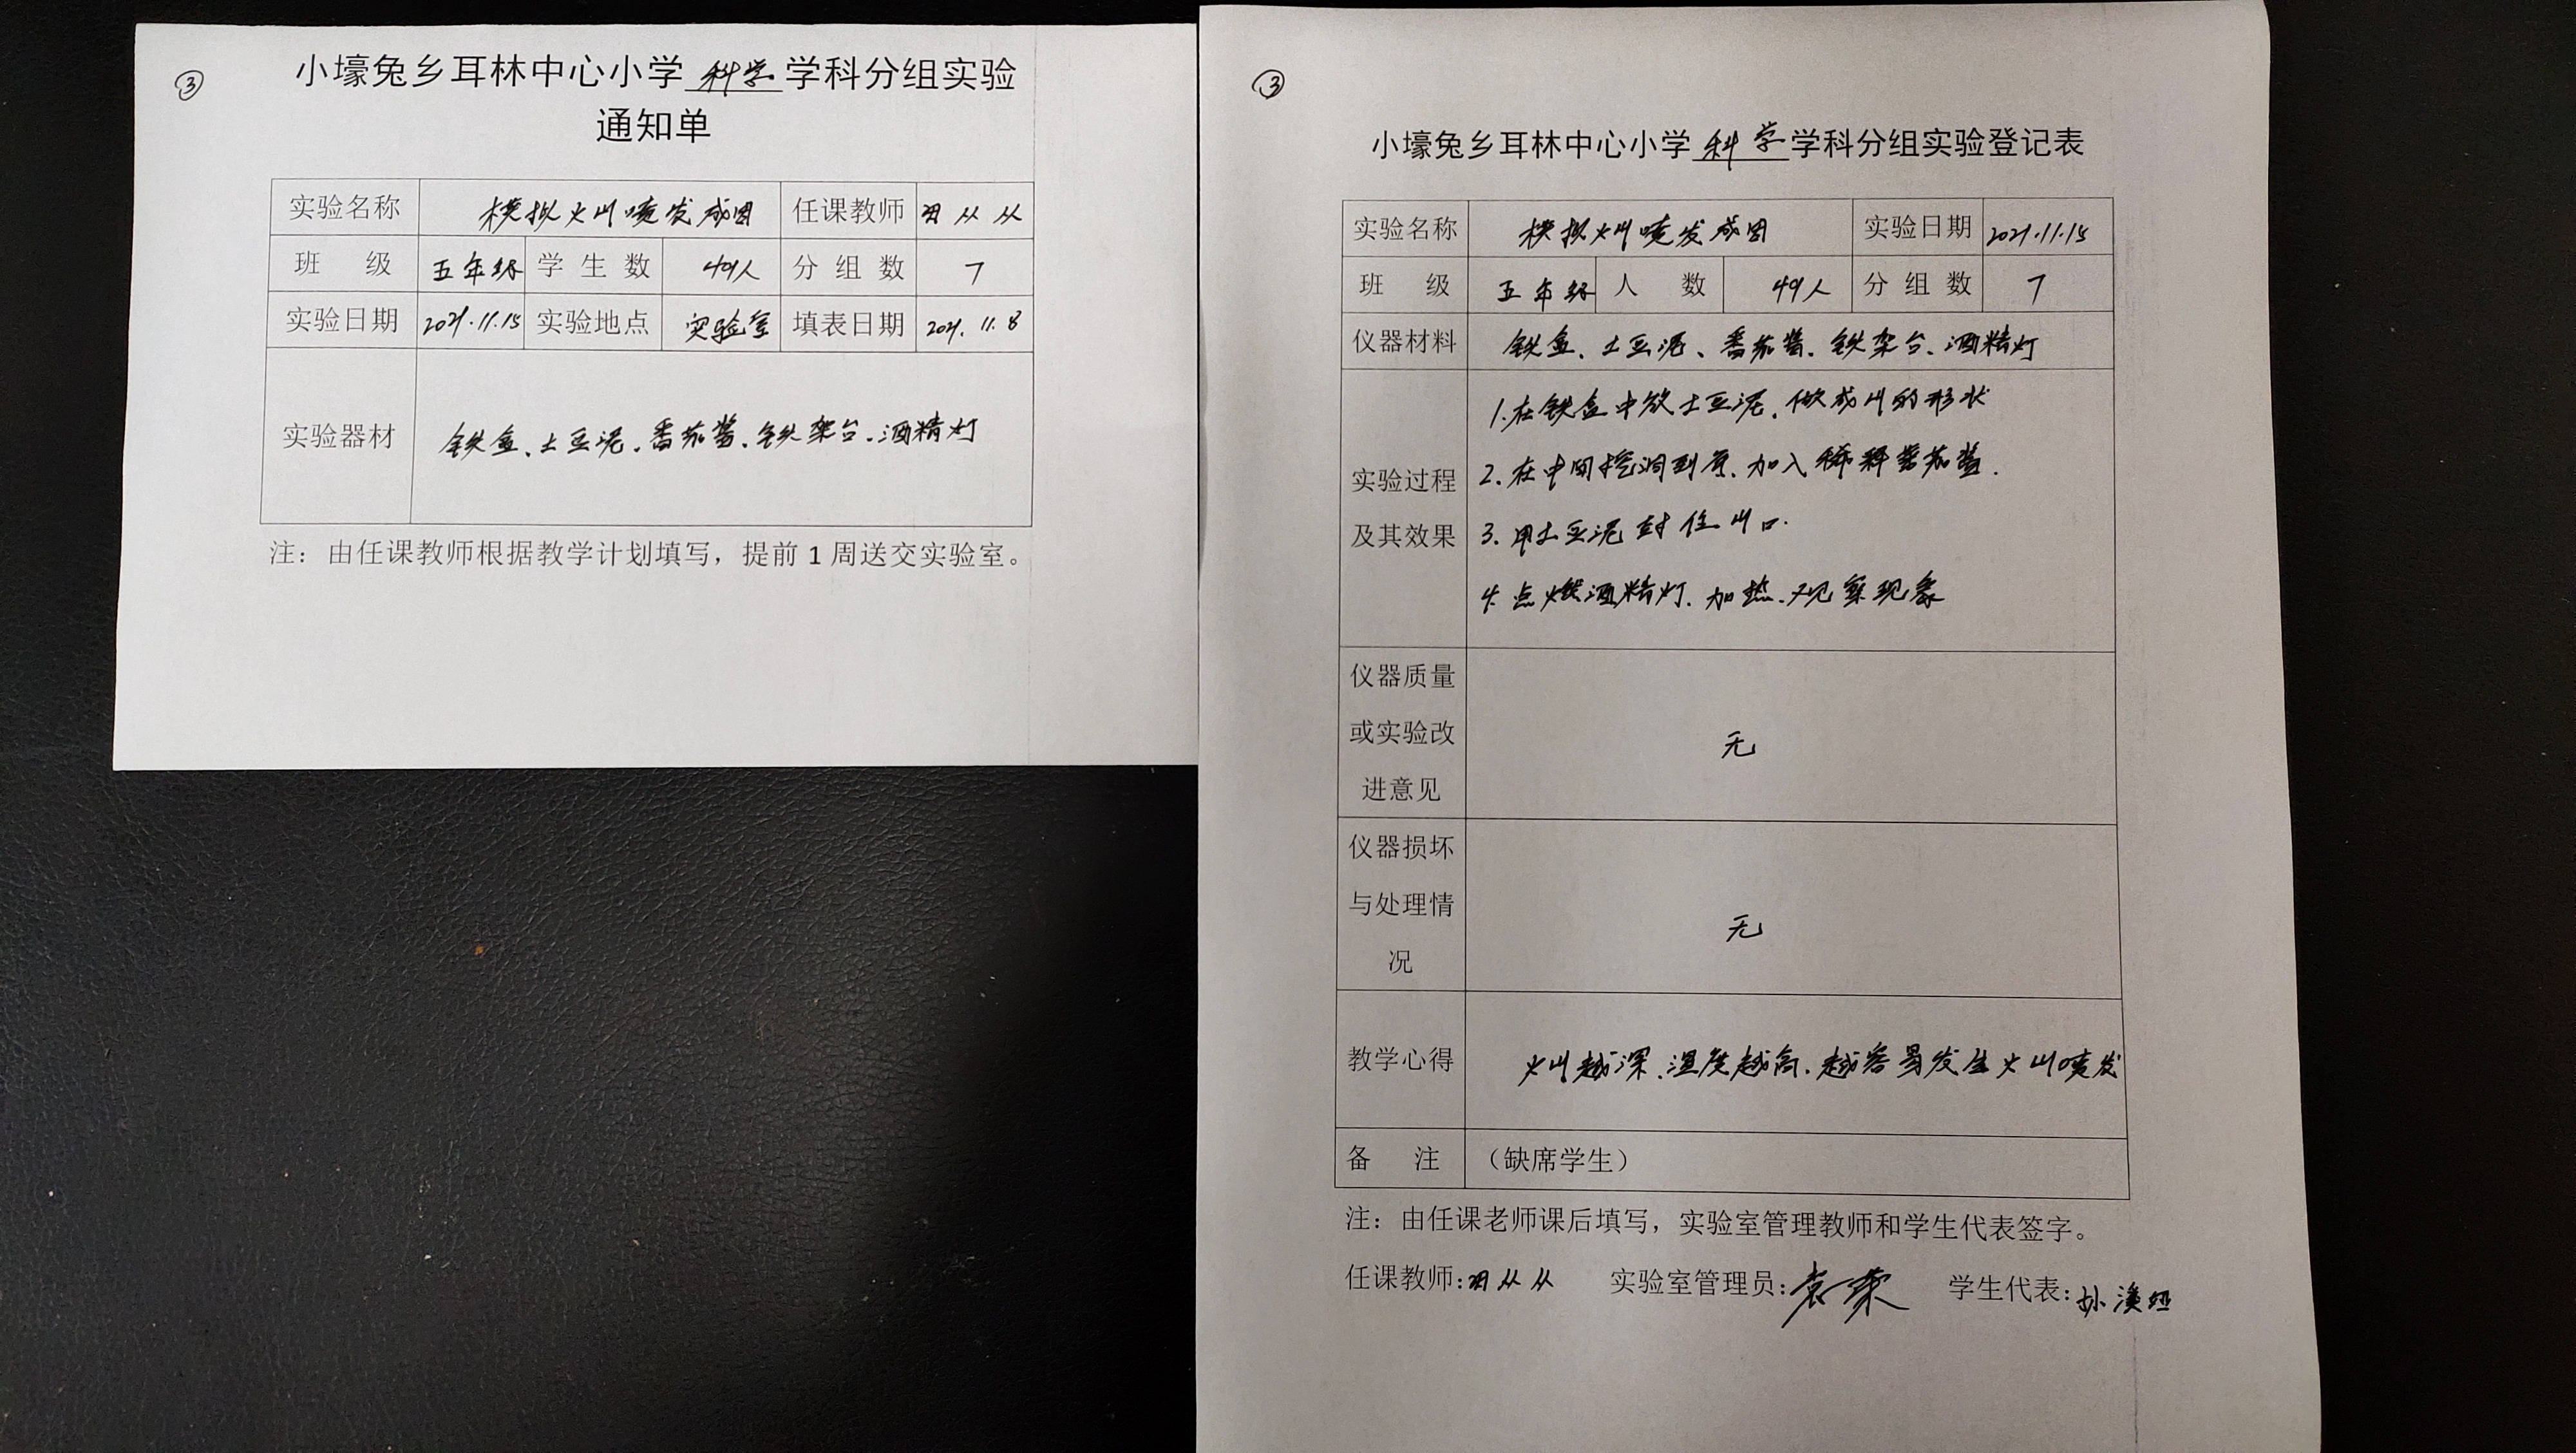 ③
小壕兔乡耳林中心小学 科学 学科分组实验
通知单
实验名称 模拟火山喷发成因 任课教师 从从
班 级 五年级 学生数 49人 分组数 7
实验日期 2021.11.15 实验地点 实验室 填表日期 2021.11.8
实验器材 铁盒、土豆泥、番茄酱、铁架台、酒精灯
注：由任课教师根据教学计划填写，提前1周送交实验室。
③
小壕兔乡耳林中心小学 科学 学科分组实验登记表
实验名称 模拟火山喷发成因 实验日期 2021.11.15
班 级 五年级 人 数 49人 分组数 7
仪器材料 铁盒、土豆泥、番茄酱、铁架台、酒精灯
实验过程
及其效果
1.在铁盒中放土豆泥、做成山的形状
2.在中间挖洞到底、加入稀释番茄酱.
3.用土豆泥封住山口.
4.点燃酒精灯、加热、观察现象
仪器质量
或实验改
进意见
无
仪器损坏
与处理情
况
无
教学心得 火山越深、温度越高、越容易发生火山喷发
备 注 （缺席学生）
注：由任课老师课后填写，实验室管理教师和学生代表签字。
任课教师: 从从 实验室管理员: 袁荣 学生代表: 孙